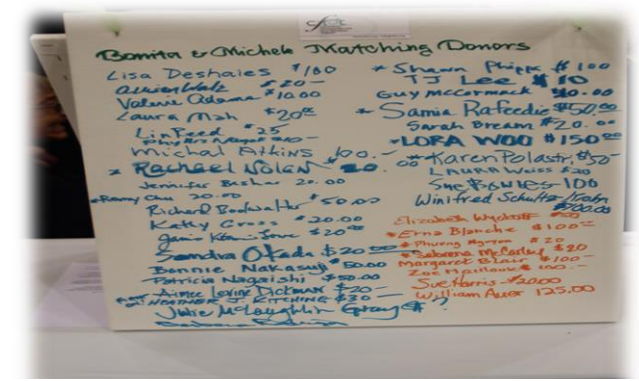 Bonita & Michele Matching Donors
Lisa Deshaies $100
$20-
Valerie Adams $10.00
Laura Mah $20.00
Lin Reed $25
Michal Atkins 100.-
* Rachael Nolan $20.00
Jennifer 20.00
Chu 20.00
Richard Bookwalter $50.00
Kathy Gross $20.00
$20.00
Sandra Okada $20.00
Bonnie Nakasuji $50.00
Patricia Nagaishi $50.00
Aimee Levine Dickman $20-
J. Kitching $30-
Julie McLaughlin Gray $ ?
Barbara
* Shawn Phipps $100
TJ Lee $10
Guy McCormack $10.00
* Samia Rafeedie $50.00
Sarah Bream $20.00
* Lora Woo $150.00
* Karen Polastri, $50-
Laura Weiss $20
Sue Bowles 100
Winifred Schultz-Krohn
$100.00
Elizabeth Wyckoff
* Erna Blanche $100
* Phuong Nguyen $20
* Sabrena McCarley $20
Margaret Blair $100-
Zoe Mailloux $100.-
Sue Harris - $20.00
William Auer 125.00